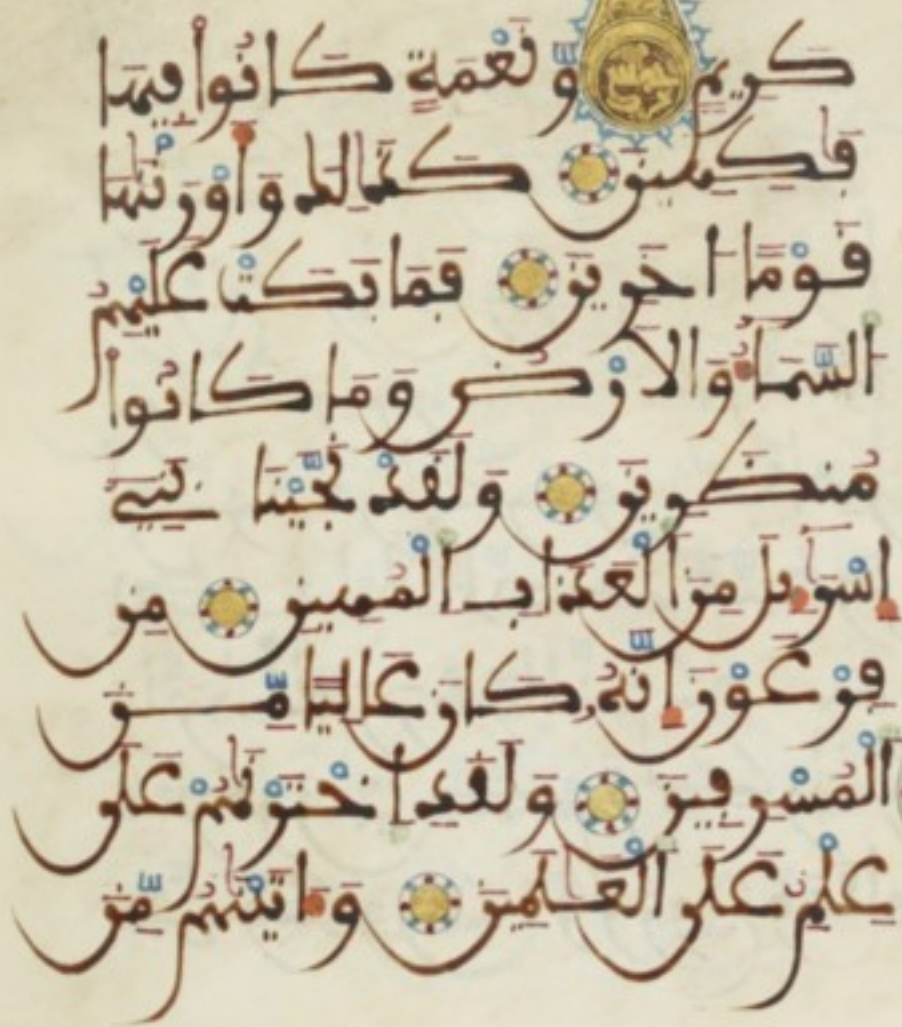 كَرِيمٍ وَنَعْمَةٍ كَانُواْ فِيهَا
فَٰكِهِينَ كَذَٰلِكَ وَأَوْرَثْنَٰهَا
قَوْمًا اخَرِينَ فَمَا بَكَتْ عَلَيْهِمُ
السَّمَاءُ وَالَارْضُ وَمَا كَانُواْ
مُنظَرِينَ وَلَقَدْ نَجَّيْنَا بَنِي
إِسْرَٰءِيلَ مِنَ الْعَذَابِ الْمُهِينِ مِن
فِرْعَوْنَ إِنَّهُ كَانَ عَالِيًا مِّنَ
الْمُسْرِفِينَ وَلَقَدِ اخْتَرْنَٰهُمْ عَلَىٰ
عِلْمٍ عَلَى الْعَٰلَمِينَ وَءَاتَيْنَٰهُم مِّنَ